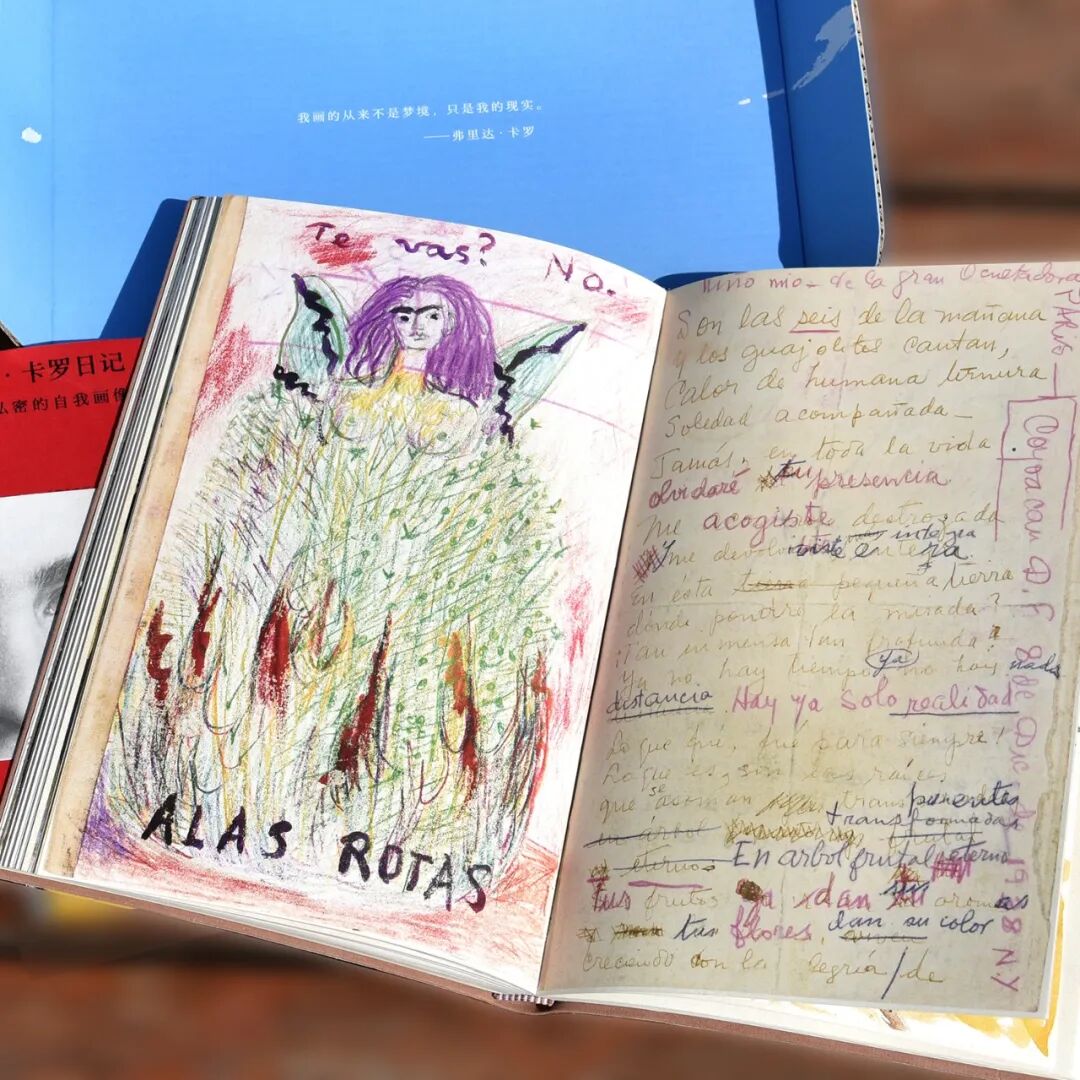 我画的从来不是梦境，只是我的现实。
——弗里达·卡罗
·卡罗日记
私密的自我画像
Te vas? No.
ALAS ROTAS
mio - de la gran Ocultadora
Son las seis de la mañana
y los guajolotes cantan,
Calor de humana ternura
Soledad acompañada -
Jamás, en toda la vida
olvidaré tu presencia
me acogiste destrozada
y me devolviste entera
En ésta pequeña tierra
dónde pondré la mirada?
¡Tan inmensa tan profunda!
Ya no hay tiempo, ya no hay nada
distancia Hay ya Solo realidad
Lo que fué, fue para siempre!
Lo que es, son las raíces
que se asoman transparentes
transformadas
En arbol frutal eterno
tus frutas ya dan sus aromas
tus flores dan su color
creciendo con la alegría/de
PARIS -
Coyoacan D.F.
8 de Dic de 1938 N.Y